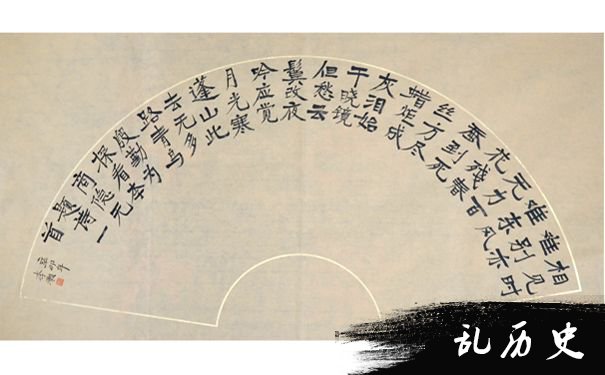 相见时
难别亦
难东风
无力百
花残春
蚕到死
丝方尽
蜡炬成
灰泪始
干晓镜
但愁云
鬓改夜
吟应觉
月光寒
蓬山此
去无多
路青鸟
殷勤为
探看李
商隐无
题诗一
首
辛卯年
李
乱历史